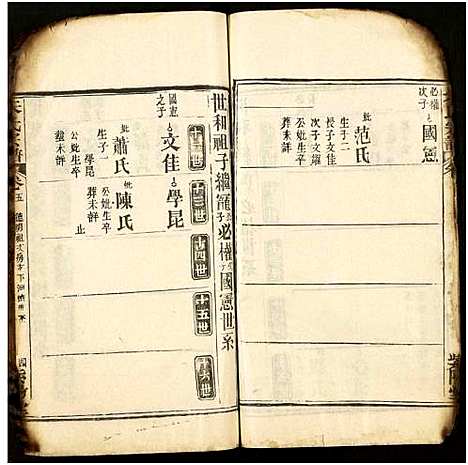 必權
次子
國憲
妣
范氏
生子二
長子文佳
次子文耀
公妣生卒
葬未詳
世和祖子繼寵子必權子國憲世系
十二世
十三世
十四世
十五世
十六世
國憲
之子
文佳
妣
蕭氏
生子一
學昆
公妣生卒
葬未詳
學昆
妣
陳氏
公妣生卒
葬未詳
止
五